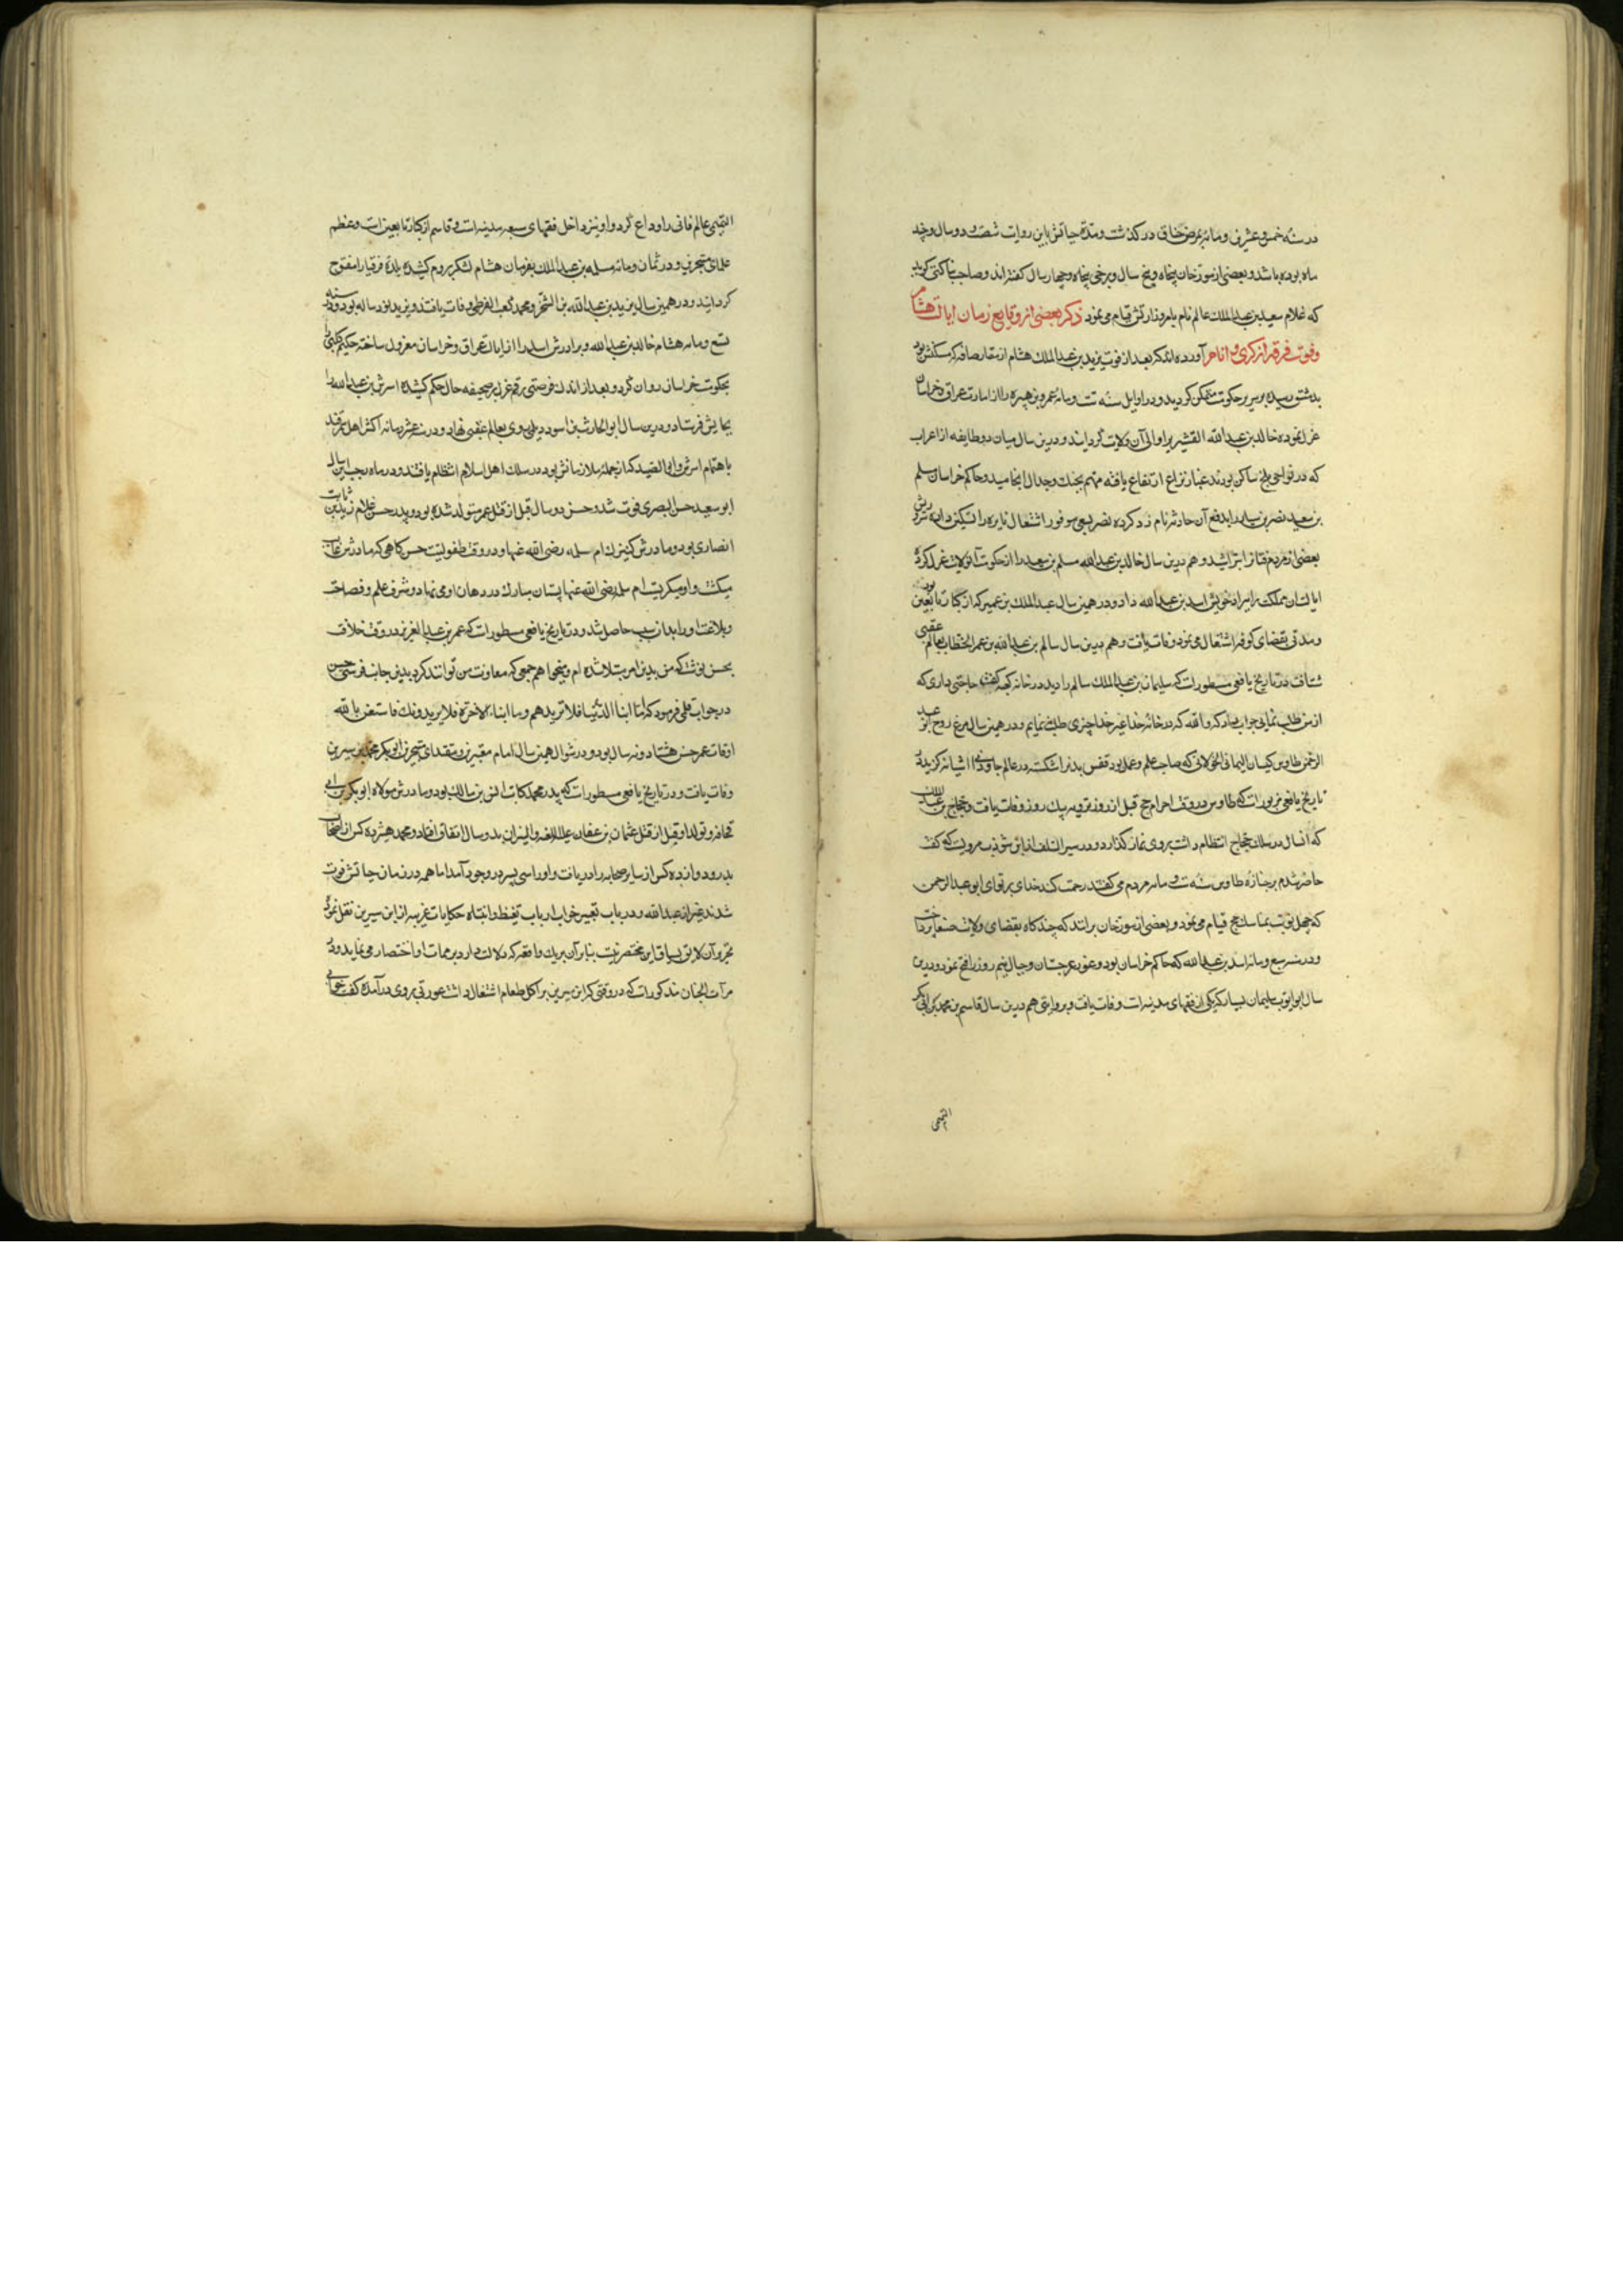 در سنه خمس و عشرین و مائه بمرض خناق در کذشت و مدة حیاتش باین روایت شصت و دو سال و چند
ماه بوده باشد و بعضی از مورخان پنجاه و پنج سال و برخی پنجاه و چهار سال کفته اند و صاحب بناکتی کوید
که غلام سعید بن عبد الملک عالم نام بامر وزارتش قیام می نمود ذکر بعضی از وقایع زمان ایالت هشام
و فوت فرقه از آورده اند که بعد از فوت یزید بن عبد الملک هشام از رصافه که مسکنش بود
بدمشق رسیده بر سریر حکومت متمکن کردید و در اوایل سنه ست و مائه عمر بن هبیره را از امارت عراق و خراسان
عزل نموده خالد بن عبد الله القشیری را والی آن ولایت کردانید و درین سال میان دو طایفه از اعراب
که در نواحی بلخ ساکن بودند غبار نزاع ارتفاع یافته مهم بجنک و جدال انجامید و حاکم خراسان مسلم
بن سعید نصر بن سیار را بدفع آن حادثه نام زد کرده نصر بسعی موفور اشتعال نایره را تسکین داده
بعضی از مردم فتان را و هم درین سال خالد بن عبد الله مسلم بن سعید را از حکومت آن ولایت عزل کرده
ایالت آن مملکت برادر خویش اسد بن عبد الله داد و در همین سال عبد الملک بن عمیر که از کبار تابعین بود
و مدتی بقضای کوفه اشتغال می نمود وفات یافت و هم درین سال سالم بن عبد الله بن عمر الخطاب بعالم عقبی
شتافت در تاریخ یافعی مسطور است که سلیمان بن عبد الملک سالم را دید در خانه کعبه کفت حاجتی داری که
از من طلب نمائی جواب داد که والله که در خانه خدا غیر خدا چیزی طلب ننمایم و در همین سال مرغ روح ابو عبد
الرحمن طاوس کیسان الیمانی الخولانی که صاحب علم و عمل بود قفس بدن را شکسته در عالم جاودانی آشیانه کزید در
تاریخ یافعی مزبور است که طاوس در وقت احرام حج قبل از روز ترویه بیک روز وفات یافت و هشام بن عبد الملک
که آن سال در سلک حجاج انتظام داشت بر وی نماز کذارد و در سیر السلف از ابن شوذب مرویست که کفت
حاضر شدم بر جنازه طاوس سنه ست و مائه مردم می کفتند رحمت کند خدای بر تو ای ابو عبد الرحمن
که چهل نوبت بمناسک حج قیام می نمود و بعضی از مورخان برانند که چند کاه بقضای ولایت صنعا پرداخت
و در سنه سبع و مائه اسد بن عبد الله که حاکم خراسان بود و غور غرجستان و جبال نیم روز را فتح نمود و درین
سال ابو ایوب سلیمان یسار که یکی از فقهای مدینه است وفات یافت و بروایتی هم درین سال قاسم بن محمد بن ابی بکر
التیمی
التیمی عالم فانی را وداع کرد و او نیز داخل فقهای سبعه مدینه است و قاسم از کبار تابعین است و عظم
علمای متبحرین و در ثمان و مائه مسلمه بن عبد الملک بفرمان هشام لشکر بروم کشیده بلدة قیساریه را مفتوح
کردانید و در همین سال یزید بن عبد الله بن الشخیر و محمد کعب القرظی وفات یافتند و یزید نود ساله بود و در سنه
تسع و مائه هشام خالد بن عبد الله و برادرش اسد را از ایالت عراق و خراسان معزول ساخته حکیم کلبی را
بحکومت خراسان روان کرد و بعد از اندک فرصتی رقم عزل بر صحیفه حال حکم کشیده اسرش بن عبد الله را
بجایش فرستاد و درین سال ابو الحارث بن اسود دیلی روی بعالم عقبی نهاد و در سنه عشر و مائه اکثر اهل سمرقند
باهتمام اسرش و ابی الصیدا که از جمله ملازمانش بود در سلک اهل اسلام انتظام یافتند و در ماه رجب این سال
ابو سعید حسن البصری فوت شد و حسن دو سال قبل از قتل عمر متولد شده بود و پدر حسن غلام زید بن ثابت
انصاری بود و مادرش کنیزک ام سلمه رضی الله عنها و در وقت طفولیت حسن کاهی که مادرش غایب
میکشت و او میکریست ام سلمه رضی الله عنها پستان مبارک در دهان او می نهاد و شرف علم و فصاحت
و بلاغت او را بدان سبب حاصل شد و در تاریخ یافعی مسطور است که عمر بن عبد العزیز در وقت خلافت
بحسن نوشت که من بدین امر مبتلا شده ام و میخواهم جمعی که معاونت من توانند کرد بدین جانب فرستی حسن
در جواب قلمی فرمود که اما ابناء الدنیا فلا تریدهم و اما ابناء الاخرة فلا یریدونک فاستعن بالله
اوقات عمر حسن هشتاد و نه سال بود و در شوال همین سال امام معبرین و مقتدای متبحرین ابو بکر محمد بن سیرین
وفات یافت و در تاریخ یافعی مسطور است که پدر محمد کاتب انس بن مالک بود و مادرش مولاة ابو بکر بن ابی
قحافه و تولد او قبل از قتل عثمان بن عفان علیه بدو سال اتفاق افتاد و محمد هیژده کس از اصحاب
بدر و دوازده کس از سایر صحابه را دریافت و او را سی پسر در وجود آمد اما همه در زمان حیاتش فوت
شدند غیر از عبد الله و در باب تعبیر خواب ارباب تیقظ و انتباه حکایات غریبه از ابن سیرین نقل نموده
تحریر آن لایق سیاق این مختصر نیست بنابر آن بریک واقعه که دلالت دارد بر ممات او اختصار می نماید و در
مرآت الجنان مذکور است که در وقتی که ابن سیرین بر اکل طعام اشتغال داشت عورتی بر وی در آمده کفت خوابی